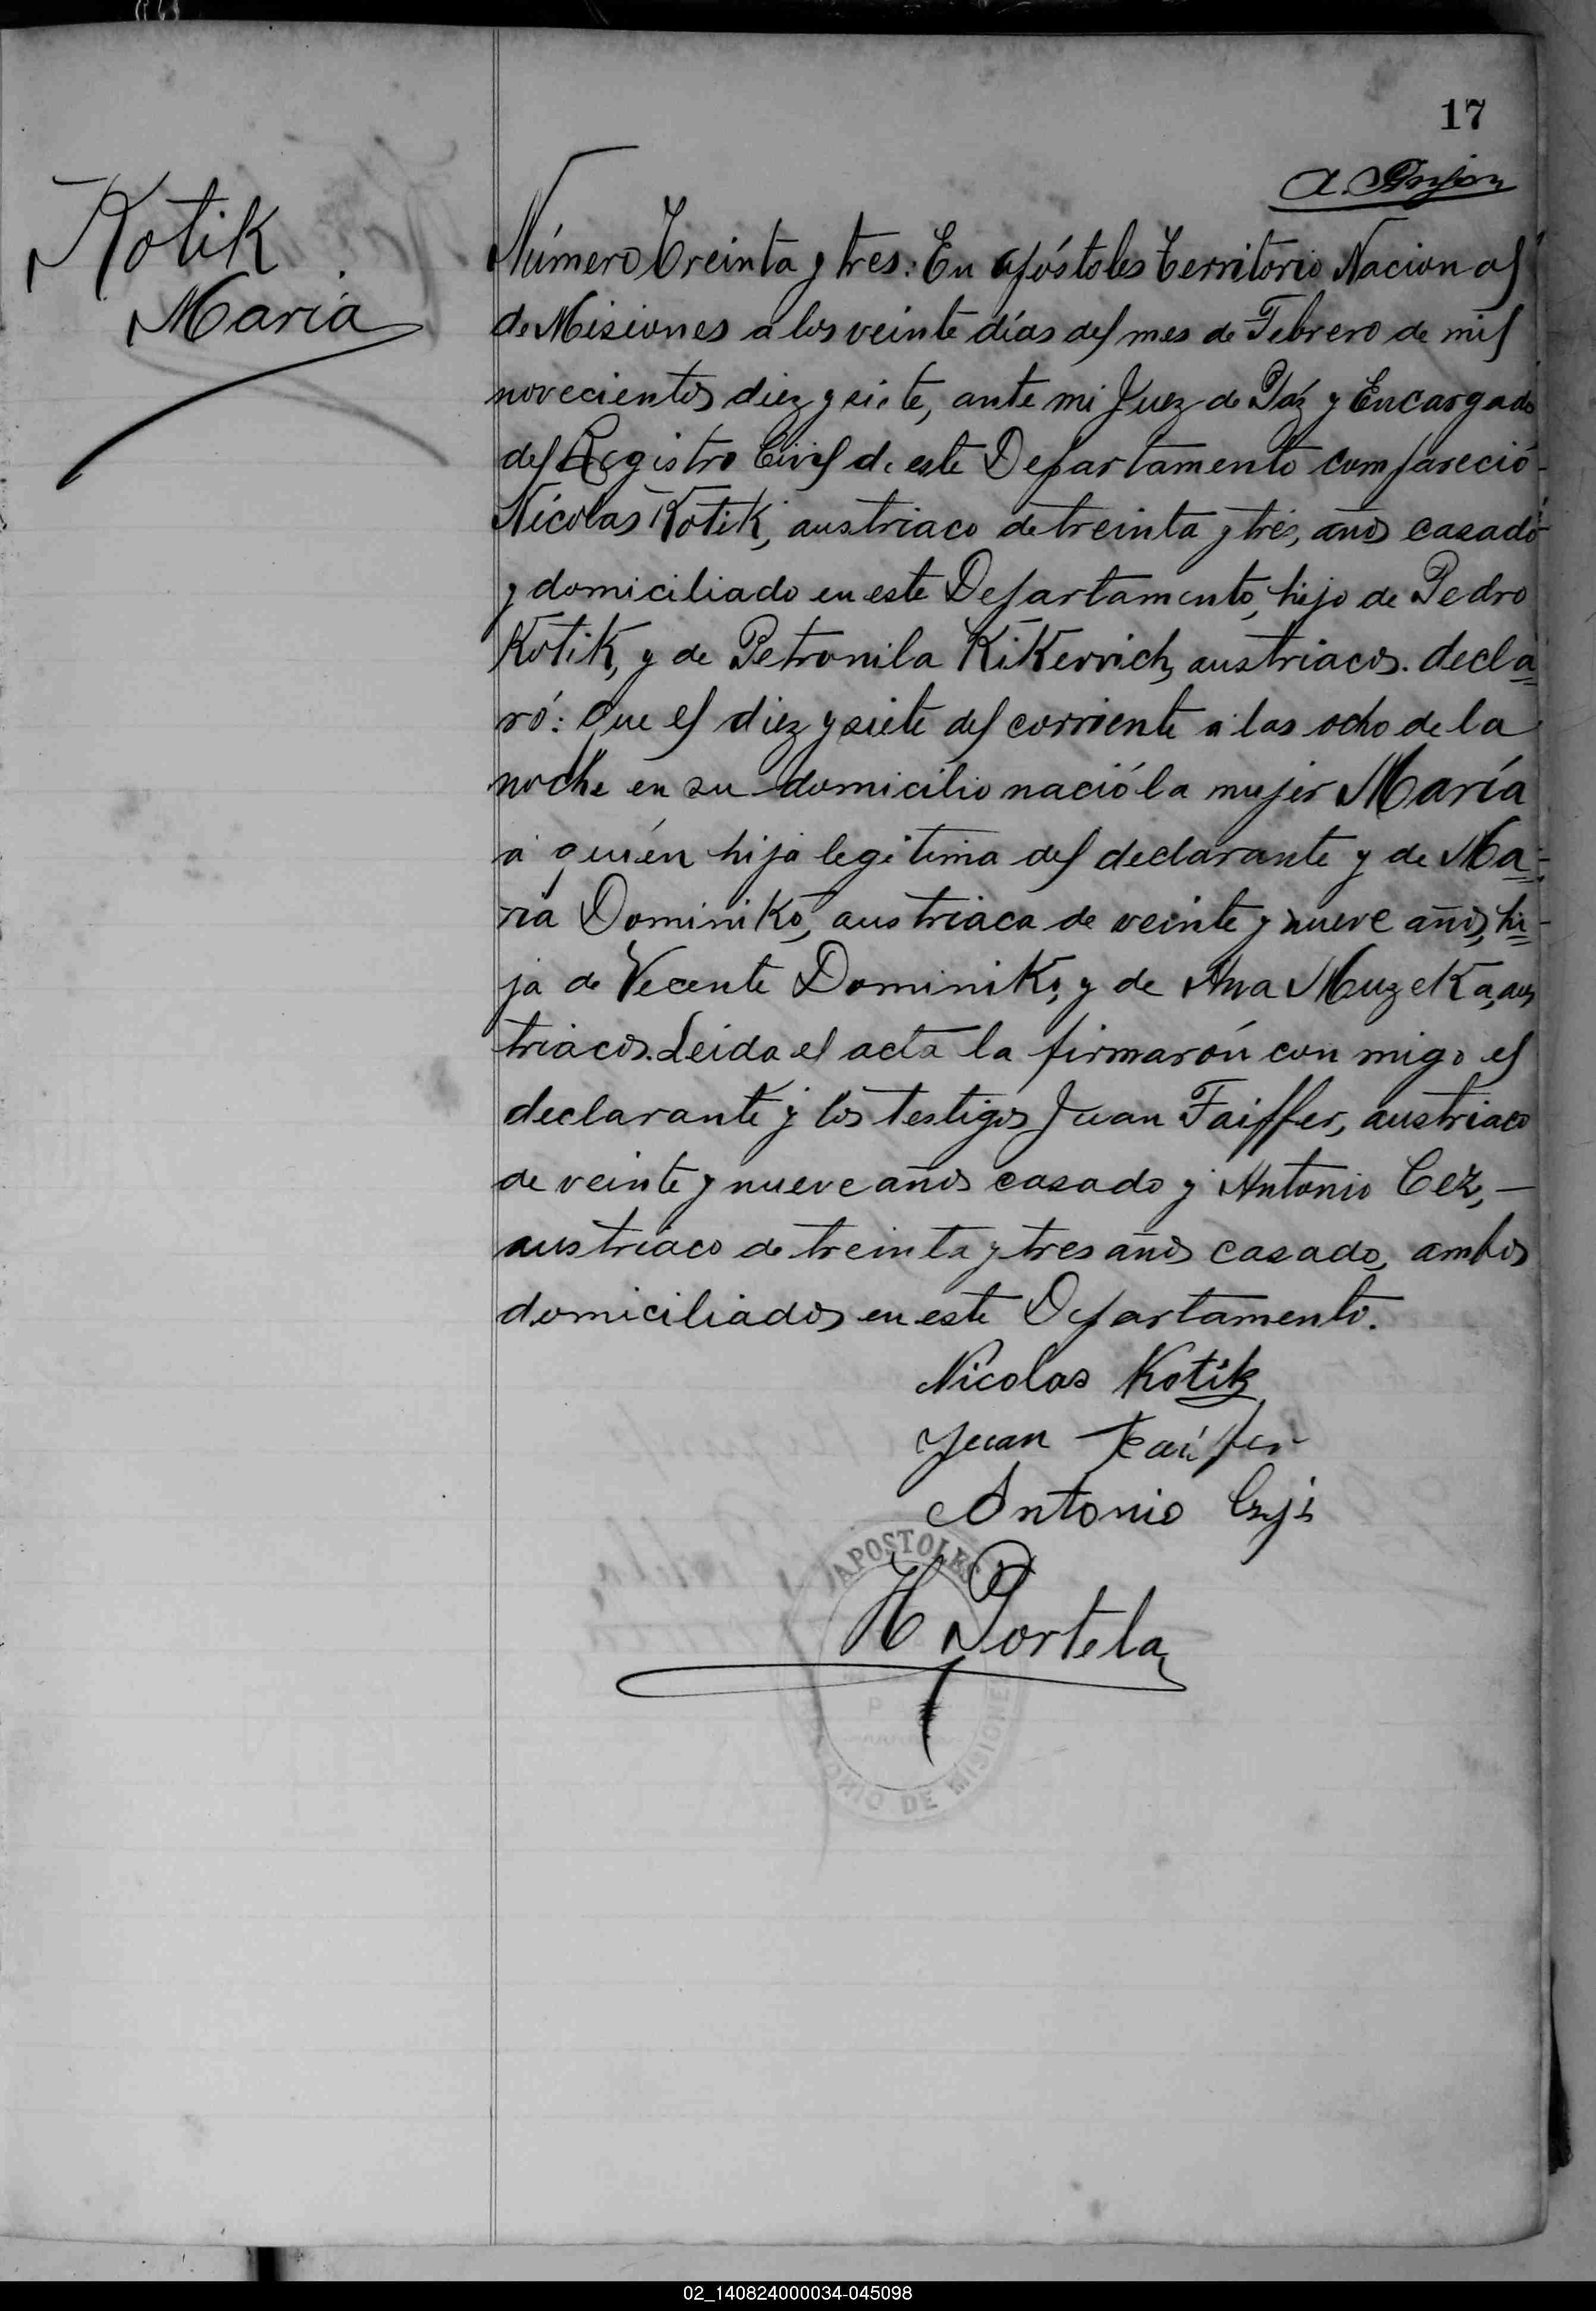 17
Kotik
María
Número Treinta y tres: En apóstoles Territorio Nacional
de Misiones a los veinte días del mes de Febrero de mil
novecientos diez y siete, ante mi Juez de Páz y Encargado
del Registro Civil de este Departamento compareció
Nícolás Kotik, austriaco de treinta y tres, años casado
y domiciliado en este Departamento, hijo de Pedro
Kotik, y de Petronila Kikervich, austriacos. decla
ró: Que el diez y siete del corriente a las ocho de la
noche en su domicilio nació la mujer María
a quién hija legitima del declarante y de Ma-
ria Dominikó, austriaca de veinte y nueve años, hi-
ja de Vecente Dominikó, y de Ana Muzeka, aus
triacos. Leida el acta la firmarón con migo el
declarante y los testigos Juan Faiffer, austriaco
de veinte y nueve años casado y Antonio Cez, —
austriaco de treinta y tres años casado, ambos
domiciliados en este Departamento.
Nicolas Kotik
Juan
Antonio
H Portela
APOSTOLES
DE MISIONES
02_140824000034-045098